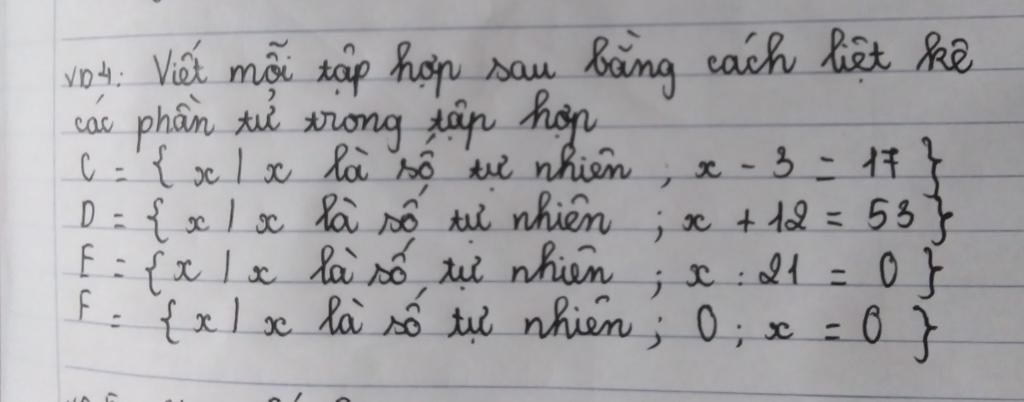 VD4: Viết mỗi tập hợp sau bằng cách liệt kê
các phần tử trong tập hợp
C = { x | x là số tự nhiên ; x - 3 = 17 }
D = { x | x là số tự nhiên ; x + 12 = 53 }
E = { x | x là số tự nhiên ; x : 21 = 0 }
F = { x | x là số tự nhiên ; 0 ; x = 0 }